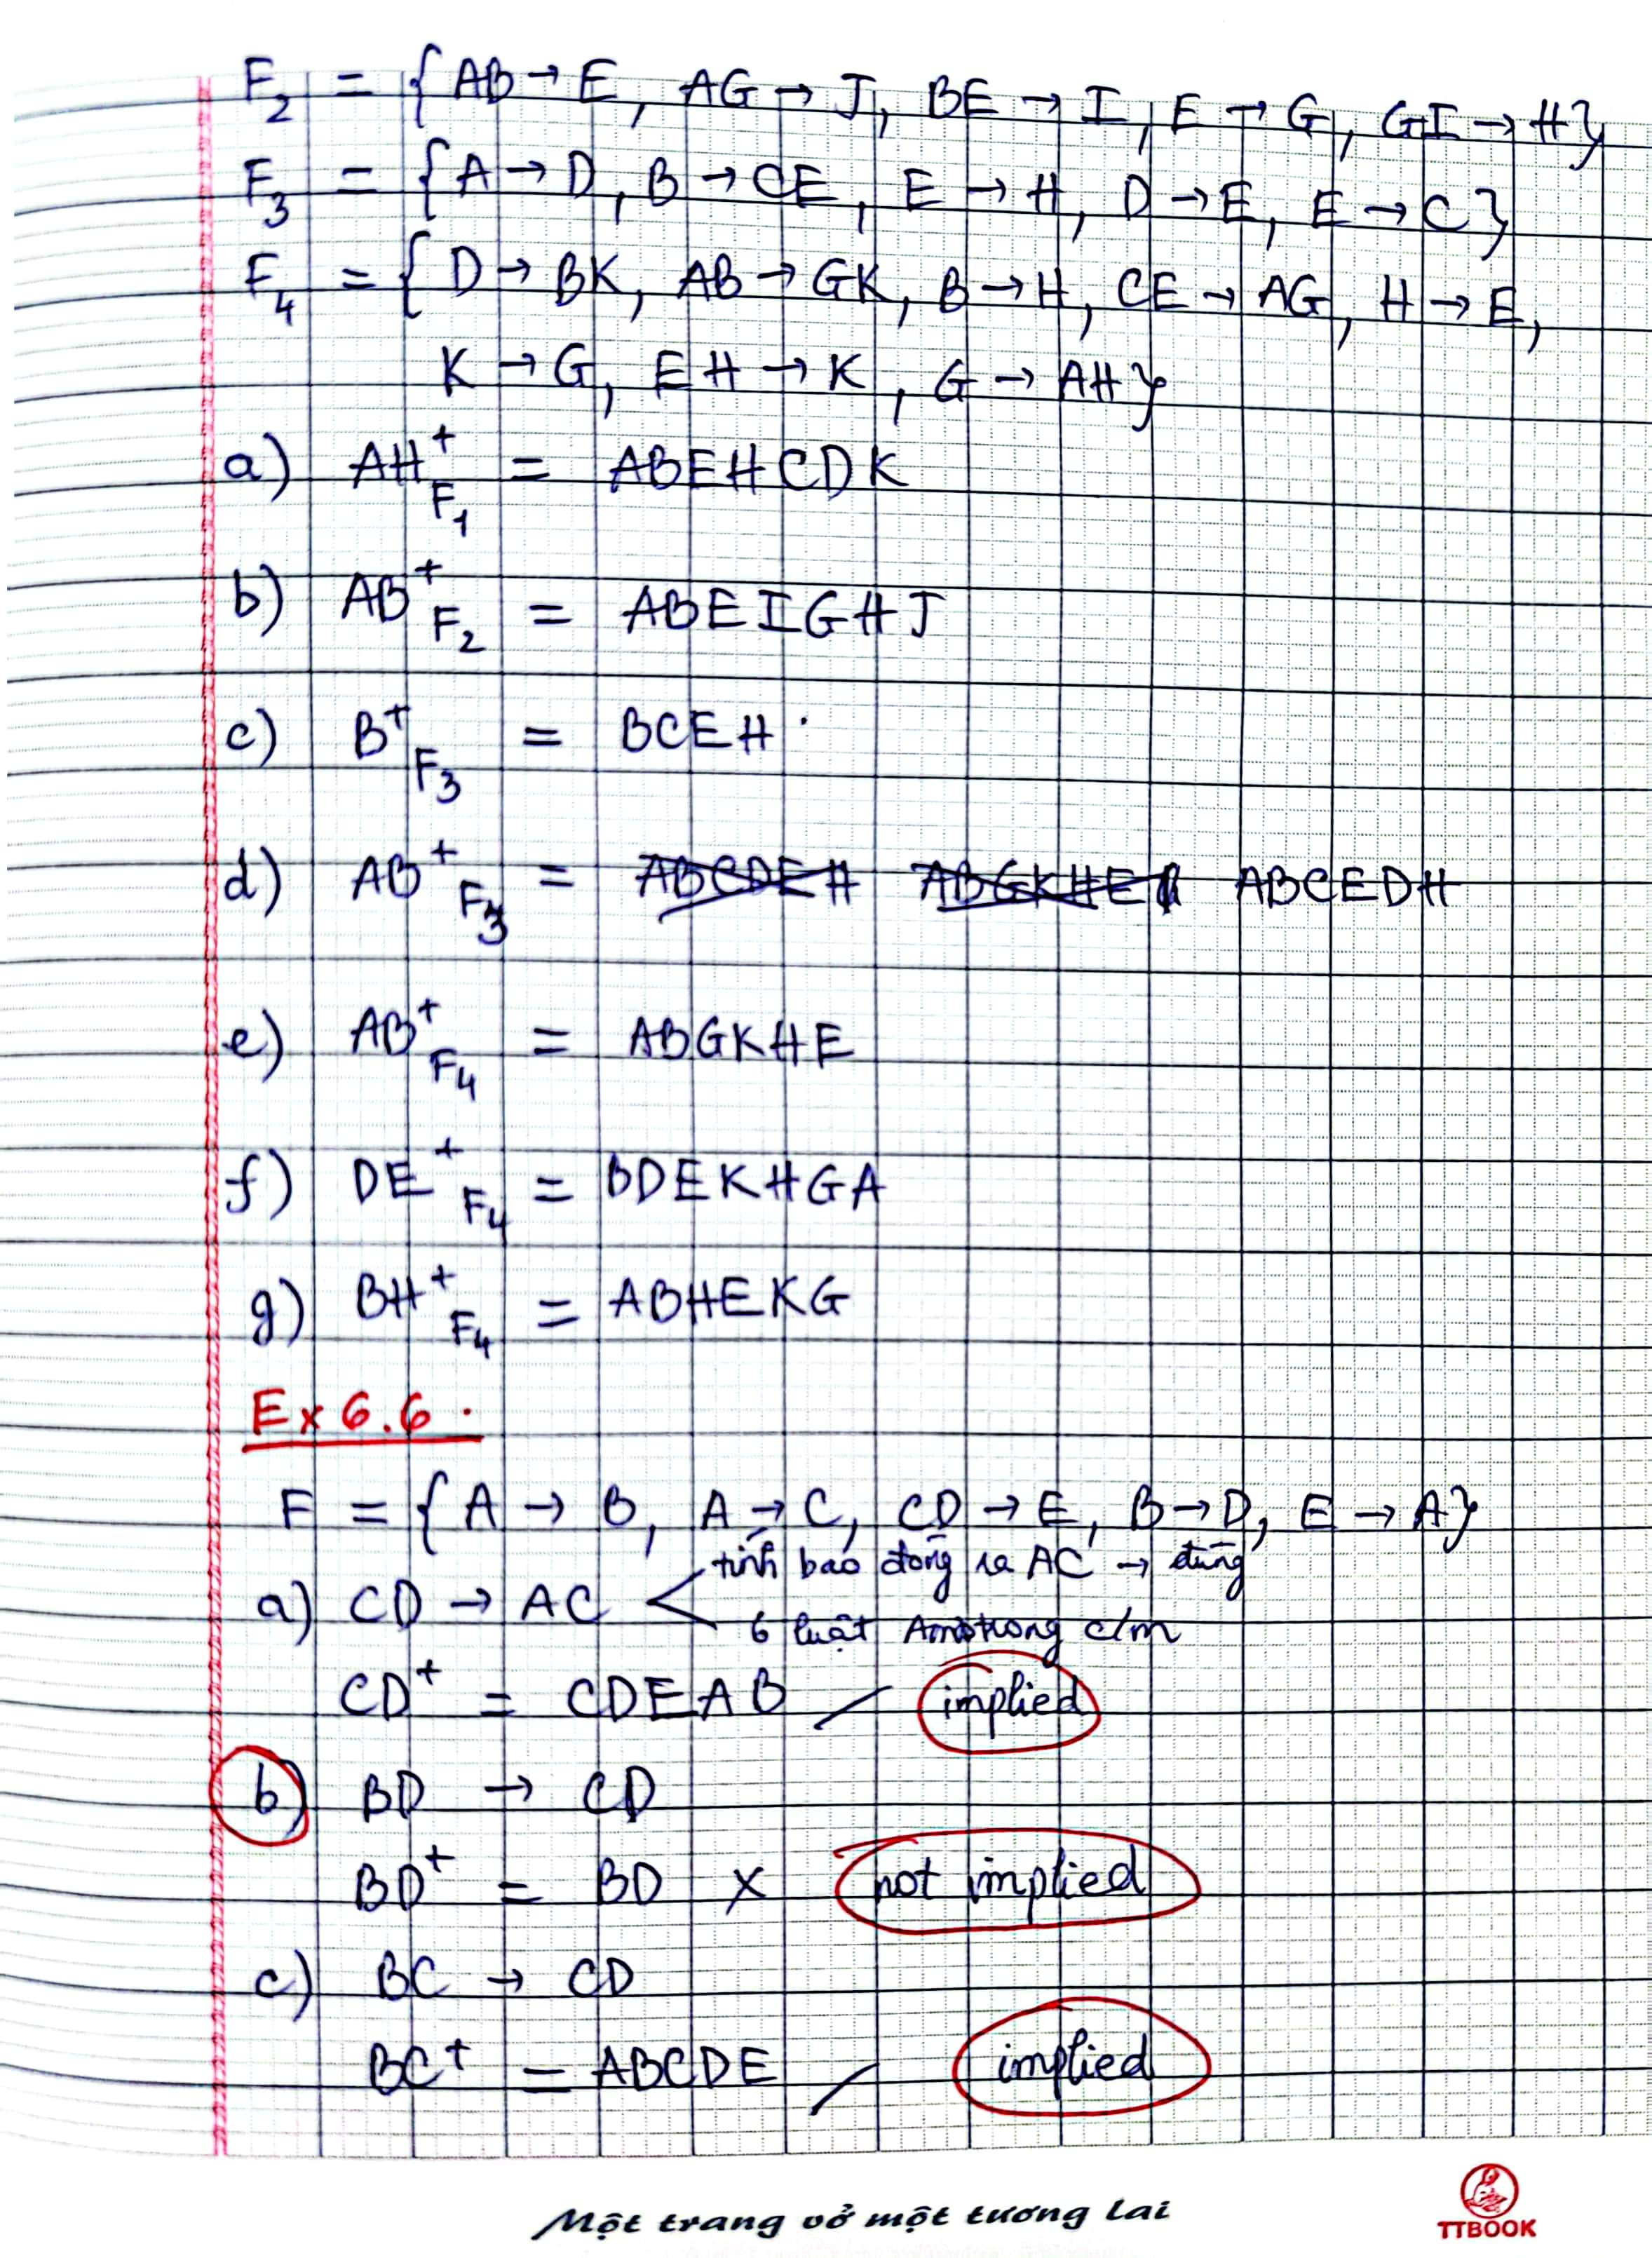 F₂ = { AB → E, AG → J, BE → I, E → G, GI → H}
F₃ = { A → D, B → CE, E → H, D → E, E → C }
F₄ = { D → BK, AB → GK, B → H, CE → AG, H → E,
K → G, EH → K, G → AH }
a) AH⁺F₁ = ABEHCDK
b) AB⁺F₂ = ABEIGHJ
c) B⁺F₃ = BCEH.
d) AB⁺F₃ = ABCDEH ABGKHE ABCEDH
e) AB⁺F₄ = ABGKHE
f) DE⁺F₄ = BDEKHGA
g) BH⁺F₄ = ABHEKG
Ex 6.6.
F = { A → B, A → C, CD → E, B → D, E → A}
tính bao đóng ra AC → đúng
a) CD → AC <
6 luật Amstrong c/m
CD⁺ = CDEAB / implied
b) BD → CD
BD⁺ = BD x not implied
c) BC → CD
BC⁺ = ABCDE / implied
Một trang vở một tương lai
TTBOOK